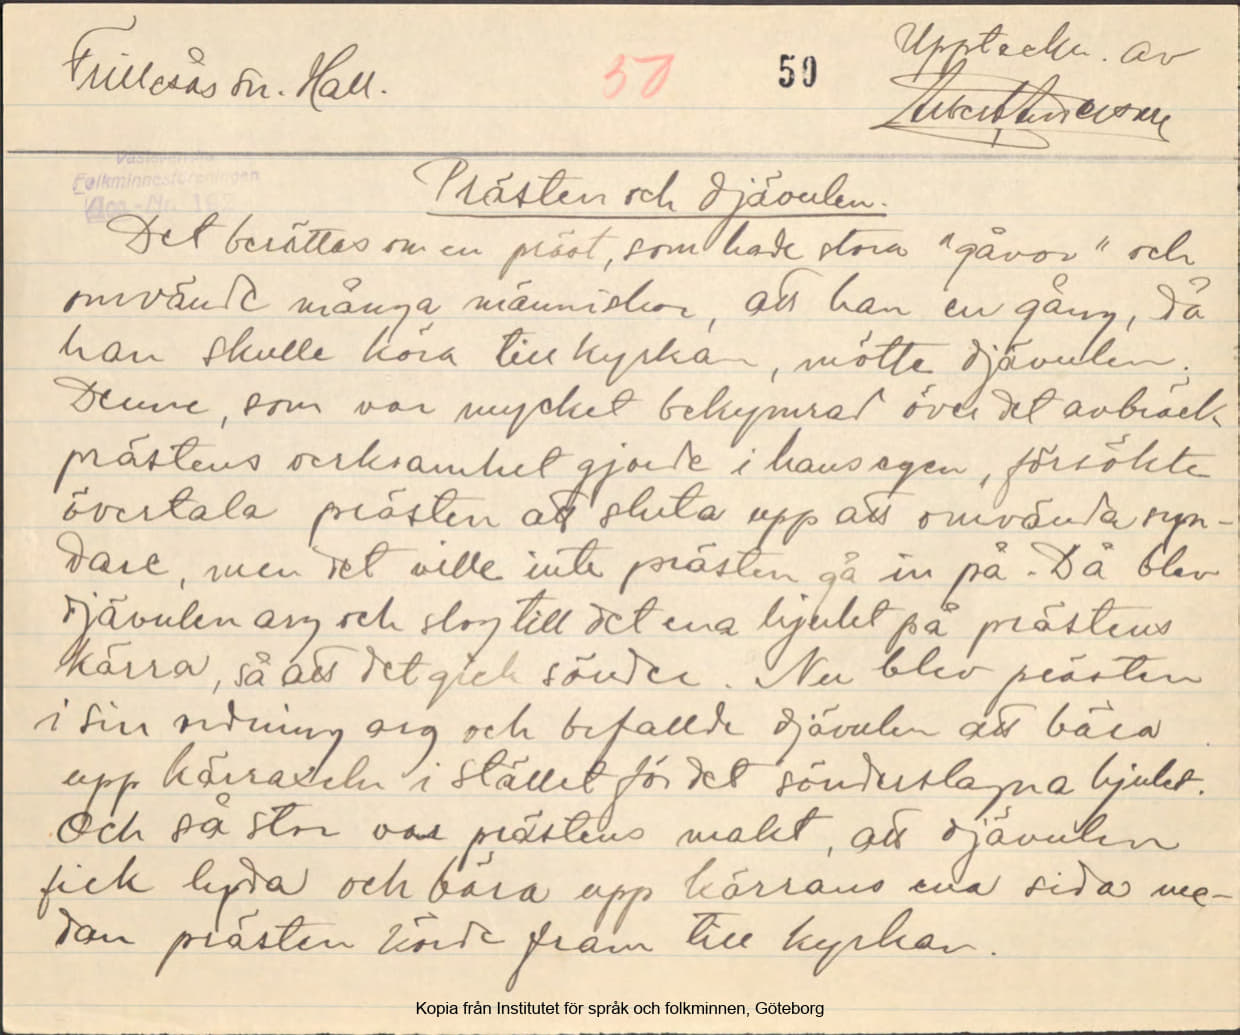 Frillesås sn. Hall.
50
50
Uppteckn. av
Folkminnesföreningen
Prästen och djävulen.
Det berättas om en präst, som hade stora "gåvor" och
omvände många människor, att han en gång, då
han skulle köra till kyrkan, mötte djävulen.
Denne, som var mycket bekymrad över det avbräck
prästens verksamhet gjorde i hans egen, försökte
övertala prästen att sluta upp att omvända syn-
dare, men det ville inte prästen gå in på. Då blev
djävulen arg och slog till det ena hjulet på prästens
kärra, så att det gick sönder. Nu blev prästen
i sin ordning arg och befallde djävulen att bära
upp kärraxeln i stället för det sönderslagna hjulet.
Och så stor var prästens makt, att djävulen
fick lyda och bära upp kärrans ena sida me-
dan prästen körde fram till kyrkan.
Kopia från Institutet för språk och folkminnen, Göteborg